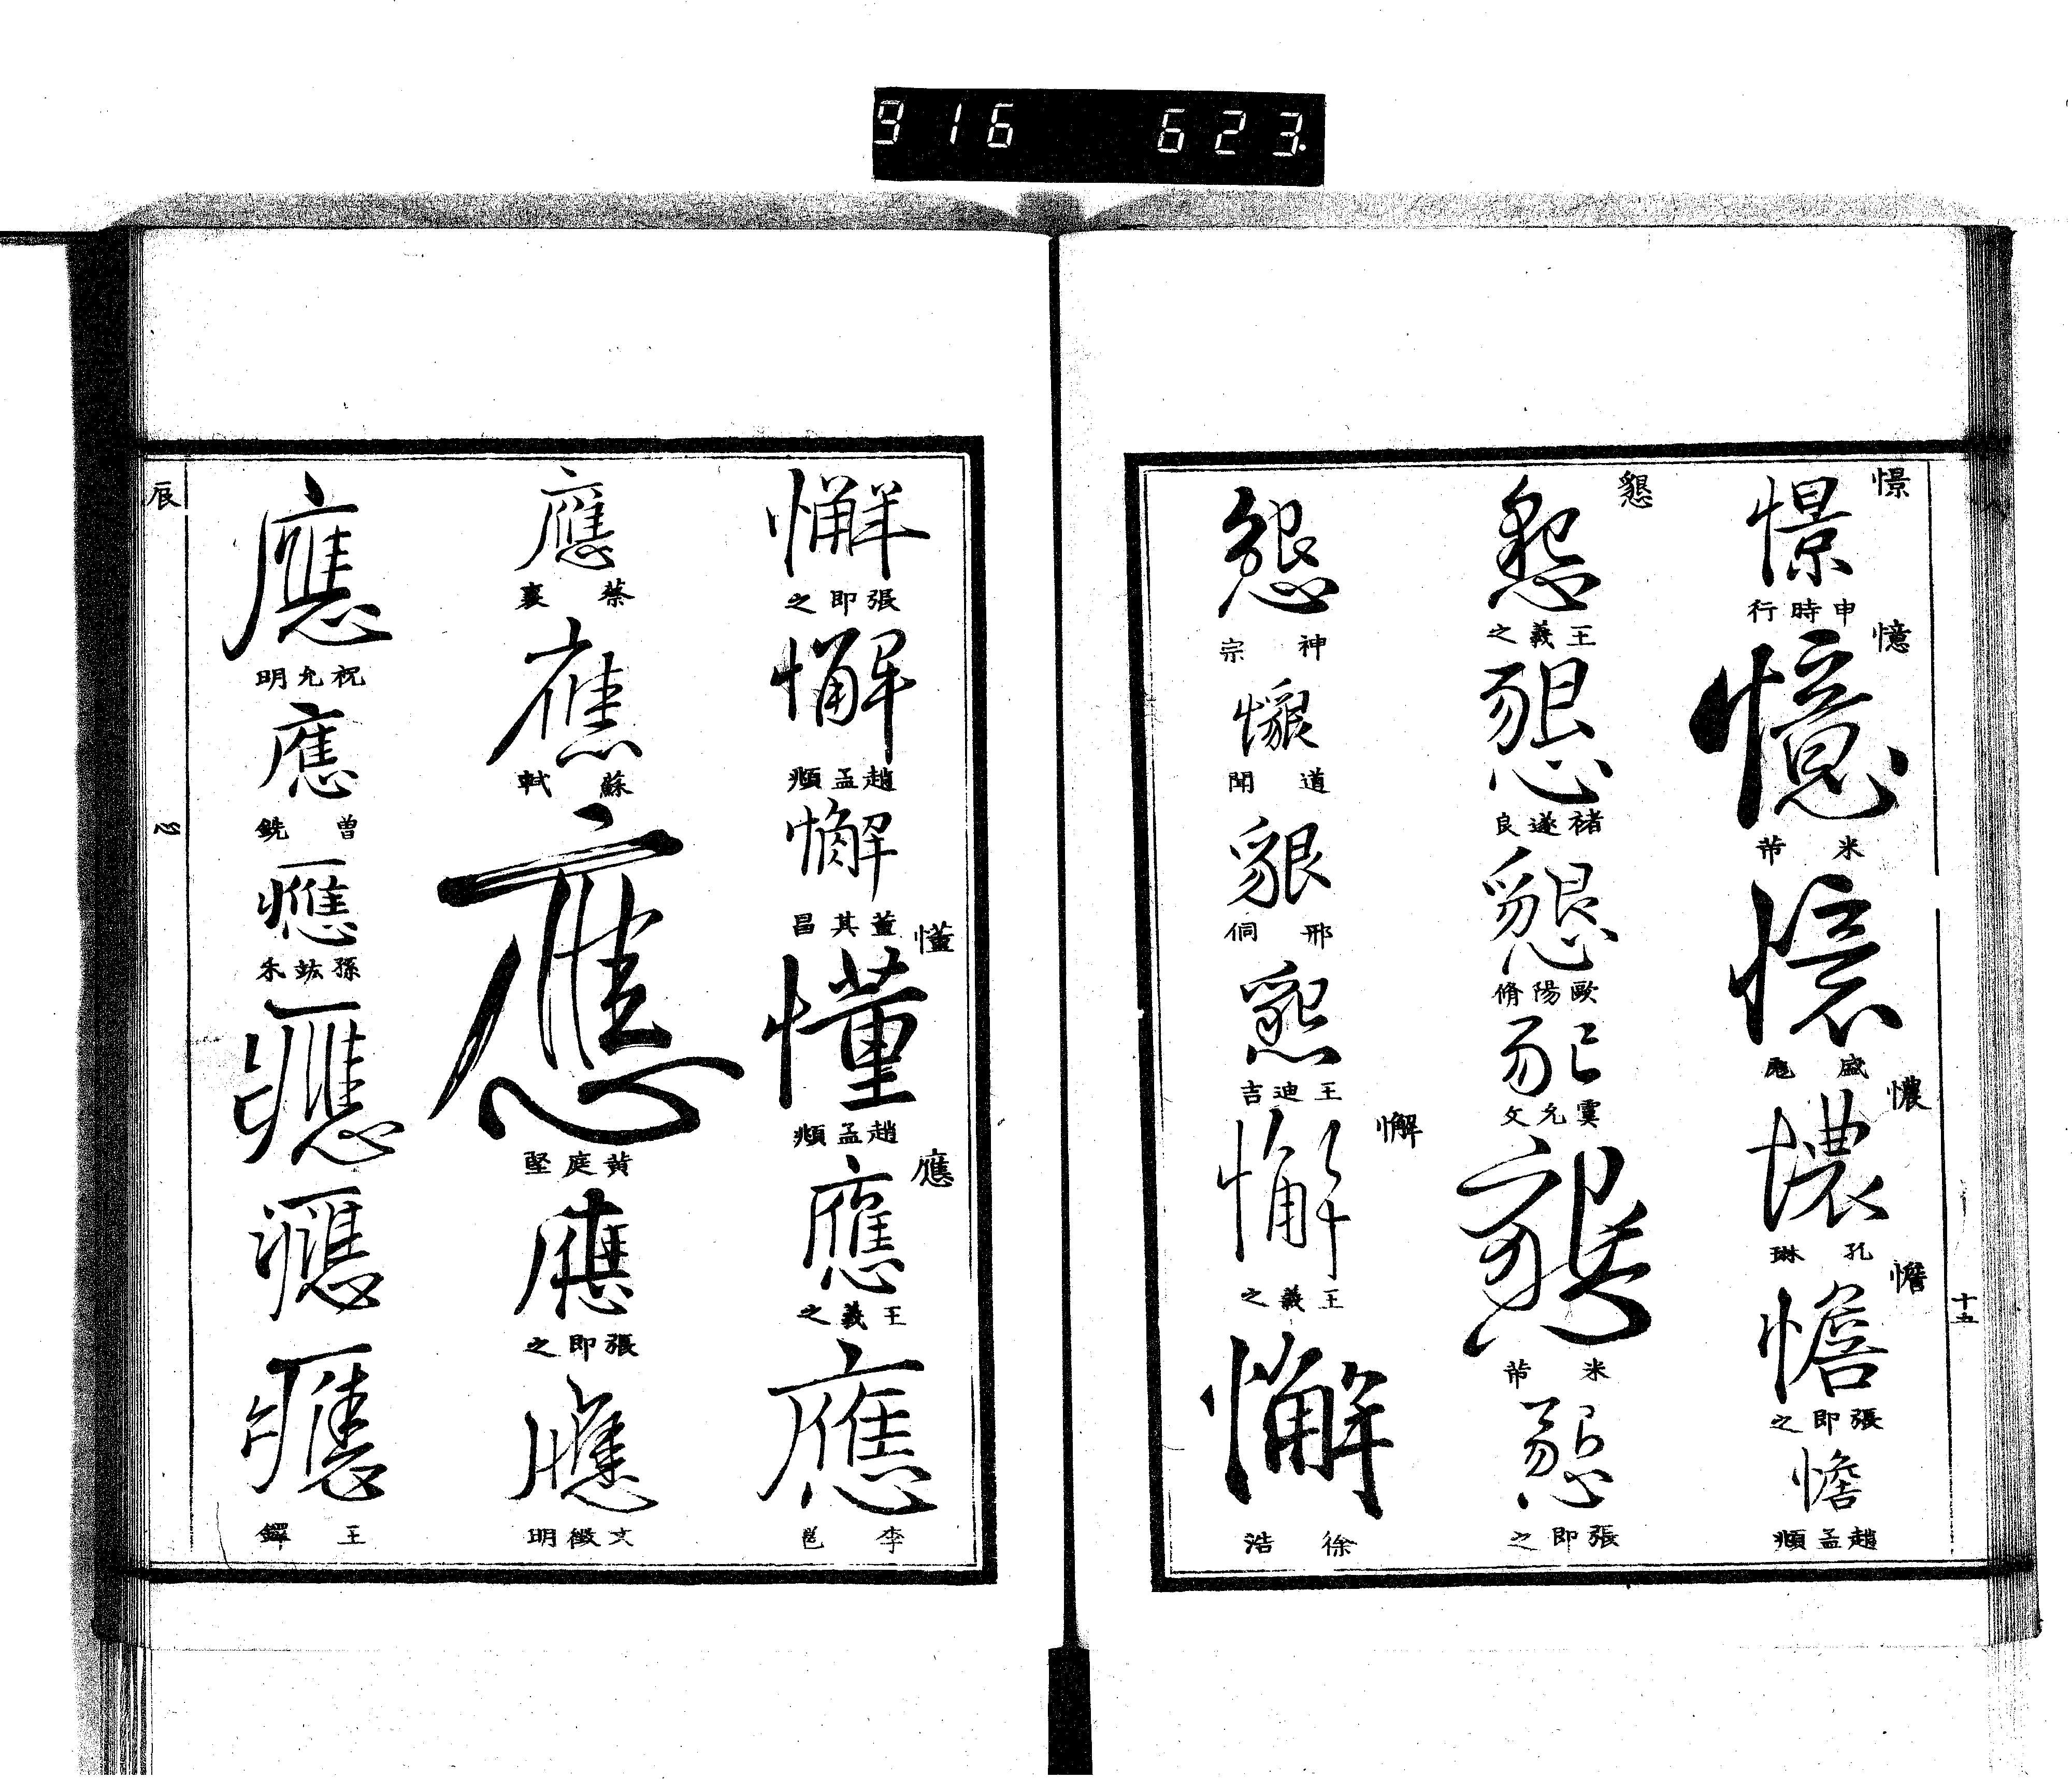 916 623.
憬
憬
申時行
憶
憶
米芾
憶
盛彪
憹
憹
孔琳
憺
憺
張即之
憺
趙孟頫
十五
懇
懇
王羲之
懇
褚遂良
懇
歐陽脩
懇
虞允文
懇
米芾
懇
張即之
懇
神宗
懇
道聞
懇
邢侗
懇
王迪吉
懈
懈
王羲之
懈
徐浩
懈
張即之
懈
趙孟頫
懈
董其昌
懂
懂
趙孟頫
應
應
王羲之
應
李邕
應
蔡襄
應
蘇軾
應
黃庭堅
應
張即之
應
文徵明
應
祝允明
應
曾銑
應
孫竑禾
應
應
應
王鐸
辰
心